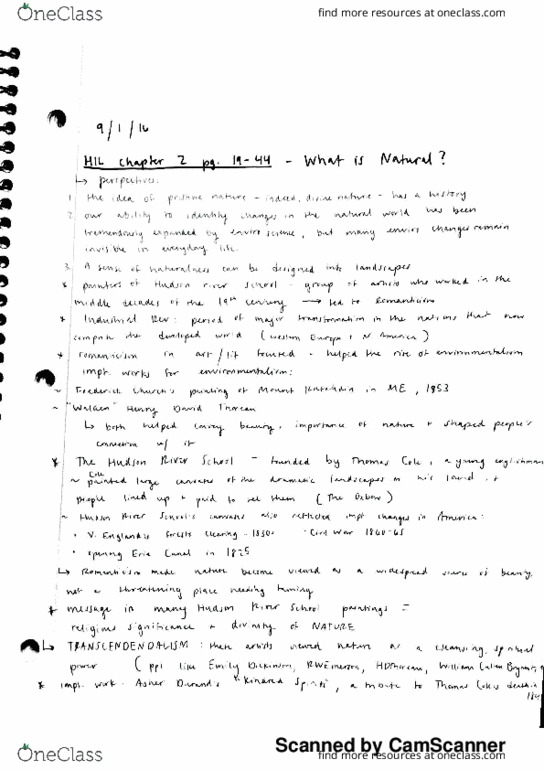 OneClass
find more resources at oneclass.com
9/1/16
HIL Chapter 2 pg. 19-44 - What is Natural?
↳ perspectives:
1. the idea of pristine nature - indeed, divine nature - has a history
2. our ability to identify changes in the natural world has been
tremendously expanded by enviro science, but many enviro changes remain
invisible in everyday life.
3. A sense of naturalness can be designed into landscapes
* painters of Hudson River School - group of artists who worked in the
middle decades of the 19th century → led to Romanticism
* Industrial Rev: period of major transformation in the nations that now
compose the developed world (Western Europe + N America)
* romanticism in art/lit - helped the rise of environmentalism
impt. works for environmentalism:
~ Frederick Church's painting of Mount Katahdin in ME, 1853
~ "Walden" Henry David Thoreau
↳ both helped convey beauty, importance of nature + shaped people's
connection w/ it
* The Hudson River School - founded by Thomas Cole, a young englishman
~ Cole painted large canvases of the dramatic landscapes +
people lined up + paid to see them (The Oxbow)
~ Hudson River School's canvases also reflected impt changes in America:
• forests clearing - 1830s • Civil War 1860-65
• opening Erie Canal in 1825
↳ Romanticism made nature become viewed as a widespread source of beauty,
not a threatening place needing taming
* message in many Hudson River School paintings =
religious significance + divinity of NATURE
↳ TRANSCENDENDALISM: these artists viewed nature as a cleansing, spiritual
power (ppl like Emily Dickinson, RWEmerson, HDThoreau, William Cullen Bryant
* impt. work - Asher Durand's "Kindred Spirits", a tribute to Thomas Cole's death in
Scanned by CamScanner
OneClass
find more resources at oneclass.com